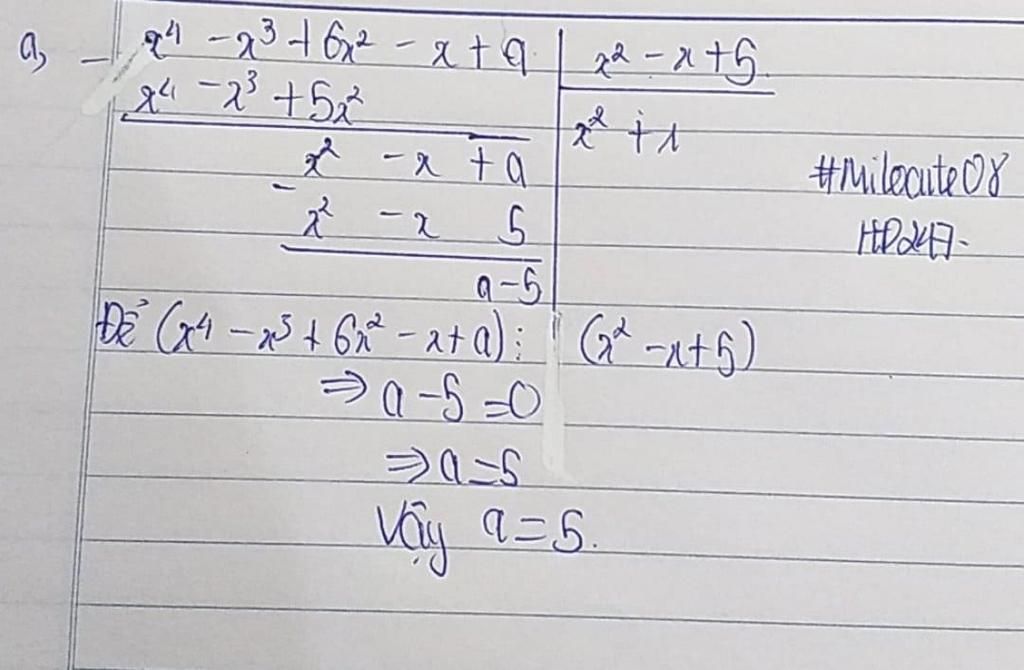 a, - x⁴ - x³ + 6x² - x + a | x² - x + 5
x⁴ - x³ + 5x² | x² + 1
x² - x + a
- x² - x 5
a - 5
#Milocute08
HP247.
Để (x⁴ - x³ + 6x² - x + a) ⋮ (x² - x + 5)
⇒ a - 5 = 0
⇒ a = 5
Vậy a = 5.